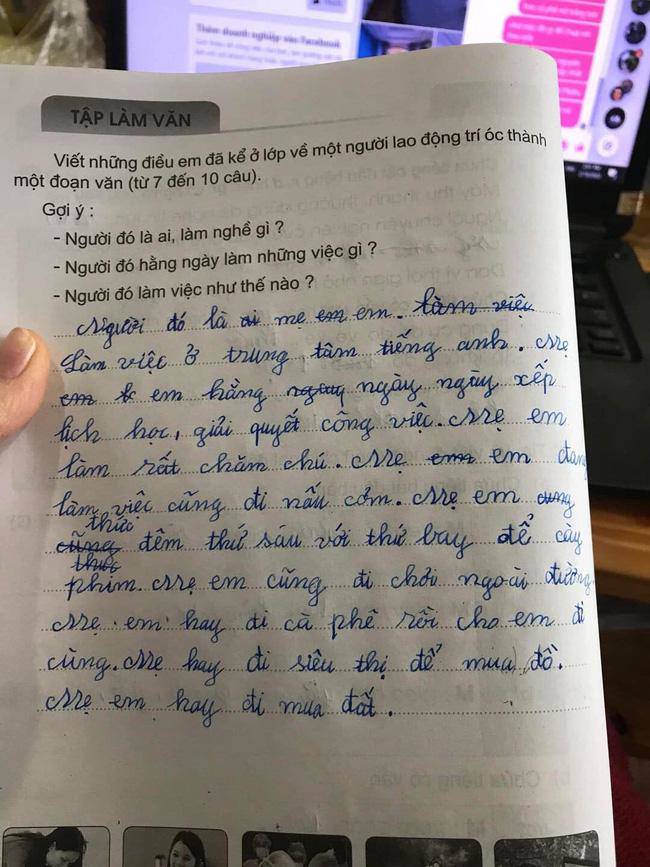 Thêm doanh nghiệp vào Facebook
TẬP LÀM VĂN
Viết những điều em đã kể ở lớp về một người lao động trí óc thành
một đoạn văn (từ 7 đến 10 câu).
Gợi ý :
- Người đó là ai, làm nghề gì ?
- Người đó hằng ngày làm những việc gì ?
- Người đó làm việc như thế nào ?
Người đó là ai mẹ em em. làm việc
Làm việc ở trung tâm tiếng anh. Mẹ
em em hằng ngày ngày ngày xếp
lịch học, giải quyết công việc. Mẹ em
làm rất chăm chú. Mẹ em em đang
làm việc cũng đi nấu cơm. Mẹ em cung
thức
cũng đêm thứ sáu với thứ bay để cày
thức
phim. Mẹ em cũng đi chơi ngoài đường.
Mẹ em hay đi cà phê rồi cho em đi
cùng. Mẹ hay đi siêu thị để mua đồ.
Mẹ em hay đi mua đất.